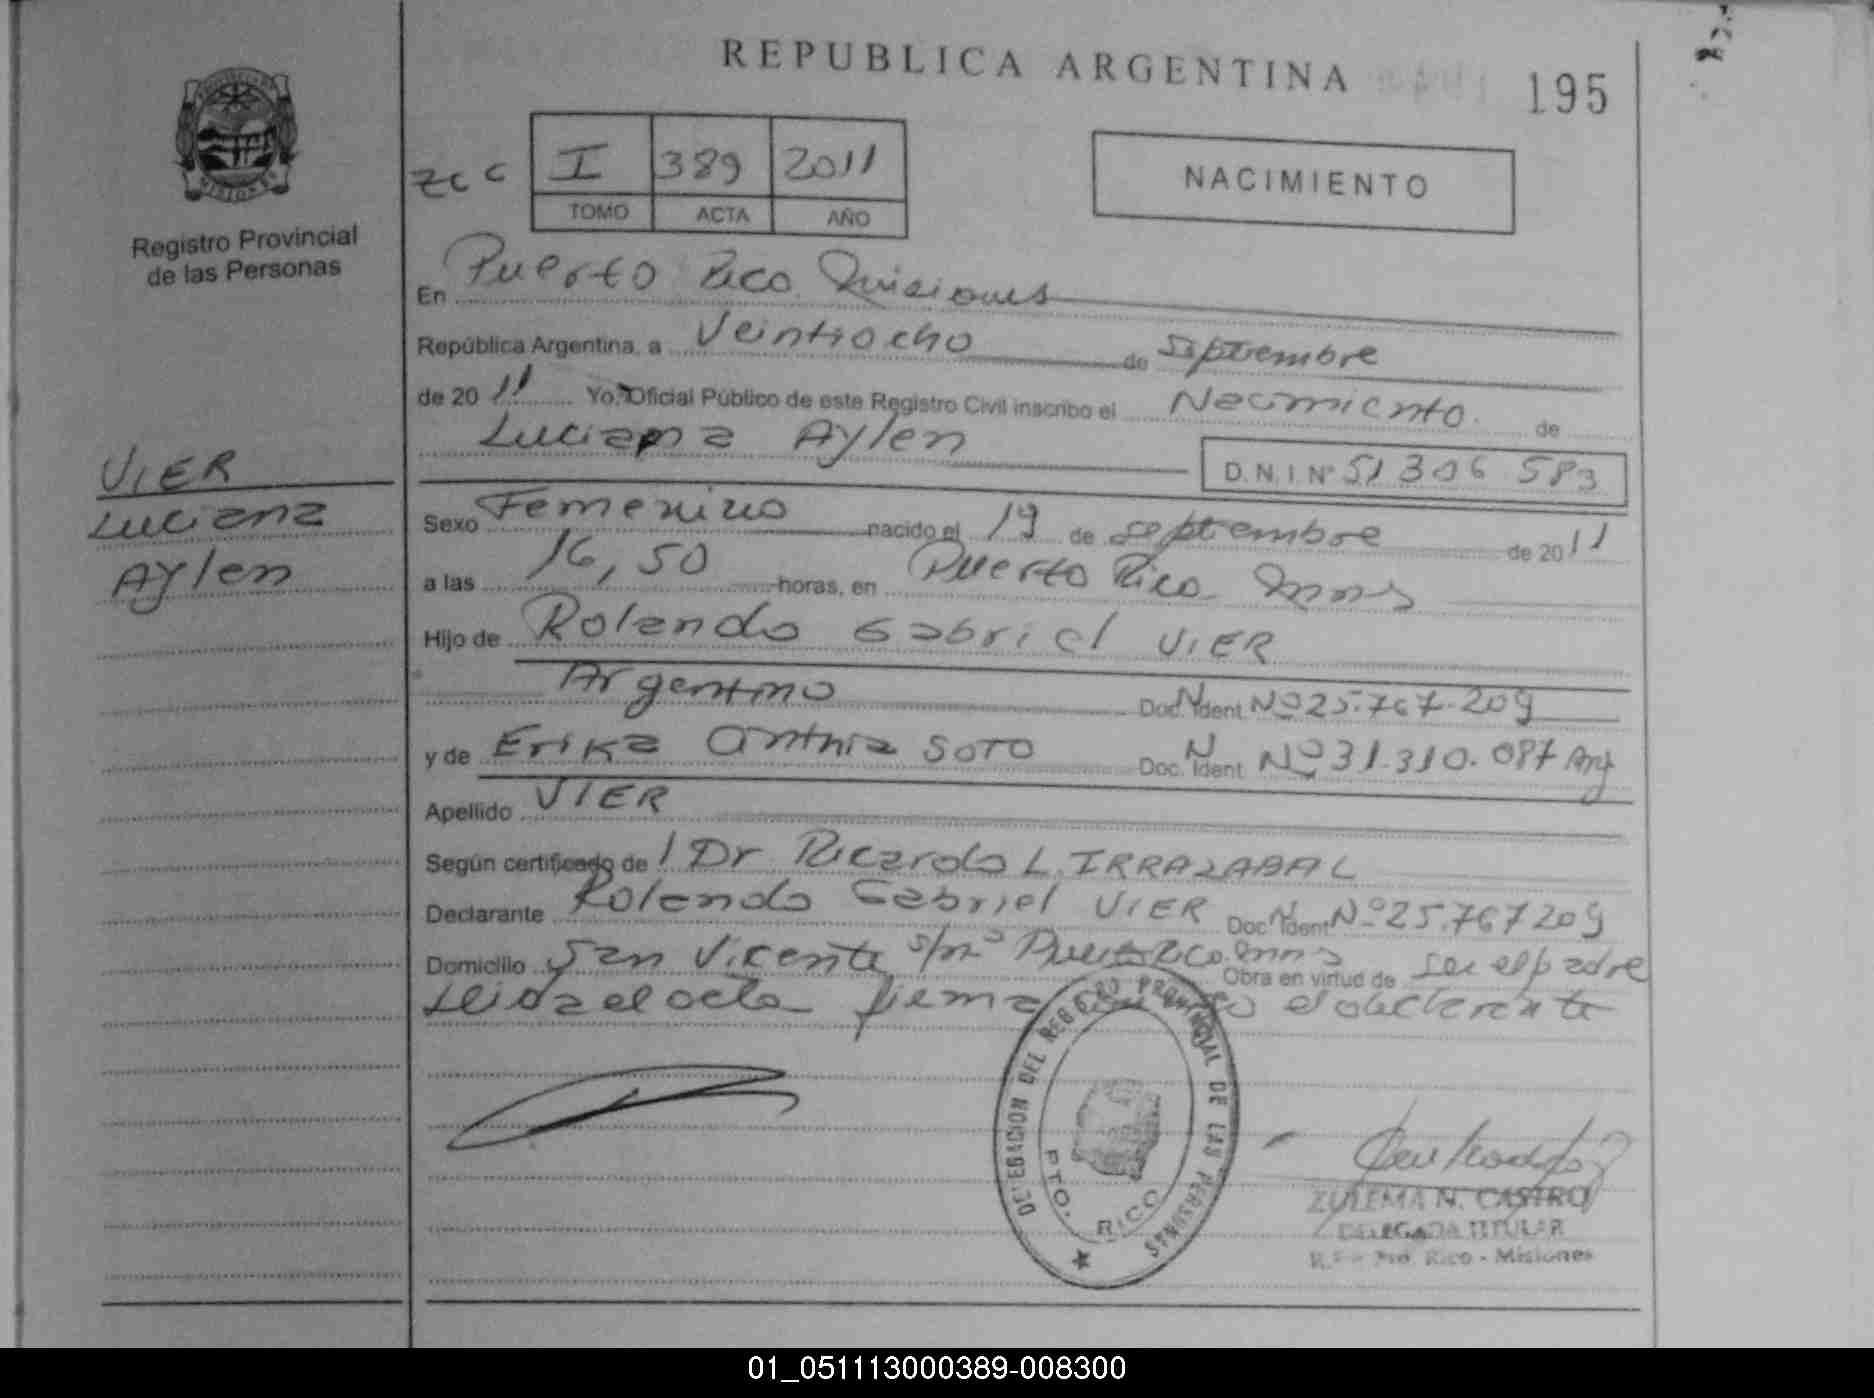 REPUBLICA ARGENTINA
195
Registro Provincial
de las Personas
zcc I 389 2011
TOMO ACTA AÑO
NACIMIENTO
En Puerto Rico Misiones
República Argentina, a Veintiocho de Septiembre
de 2011 Yo, Oficial Público de este Registro Civil inscribo el Nacimiento de
Luciana Aylen
D.N.I. Nº 51 306 583
VIER
Luciana
Aylen
Sexo Femenino nacido el 19 de septiembre de 2011
a las 16,50 horas, en Puerto Rico Mnes
Hijo de Rolando Gabriel VIER
Argentino Doc. N Ident Nº 25.767.209
y de Erika Cinthia SOTO Doc. N Ident Nº 31.310.087 Arg
Apellido VIER
Según certificado de / Dr Ricardo L. IRRAZABAL
Declarante Rolando Gabriel VIER Doc. N Ident Nº 25.767209
Domicilio San Vicente s/nº Puerto Rico Mnes Obra en virtud de ser el padre
Leida el acta firma el declarante
DELEGACION DEL REGISTRO PROVINCIAL DE LAS PERSONAS
PTO. RICO
ZULEMA N. CASTRO
DELEGADA TITULAR
Pto. Rico - Misiones
01_051113000389-008300